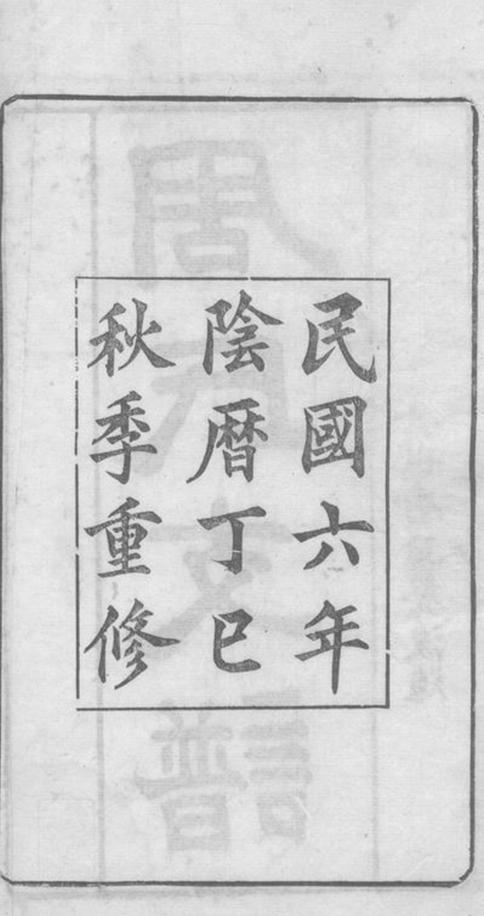 民國六年
陰暦丁巳
秋季重修